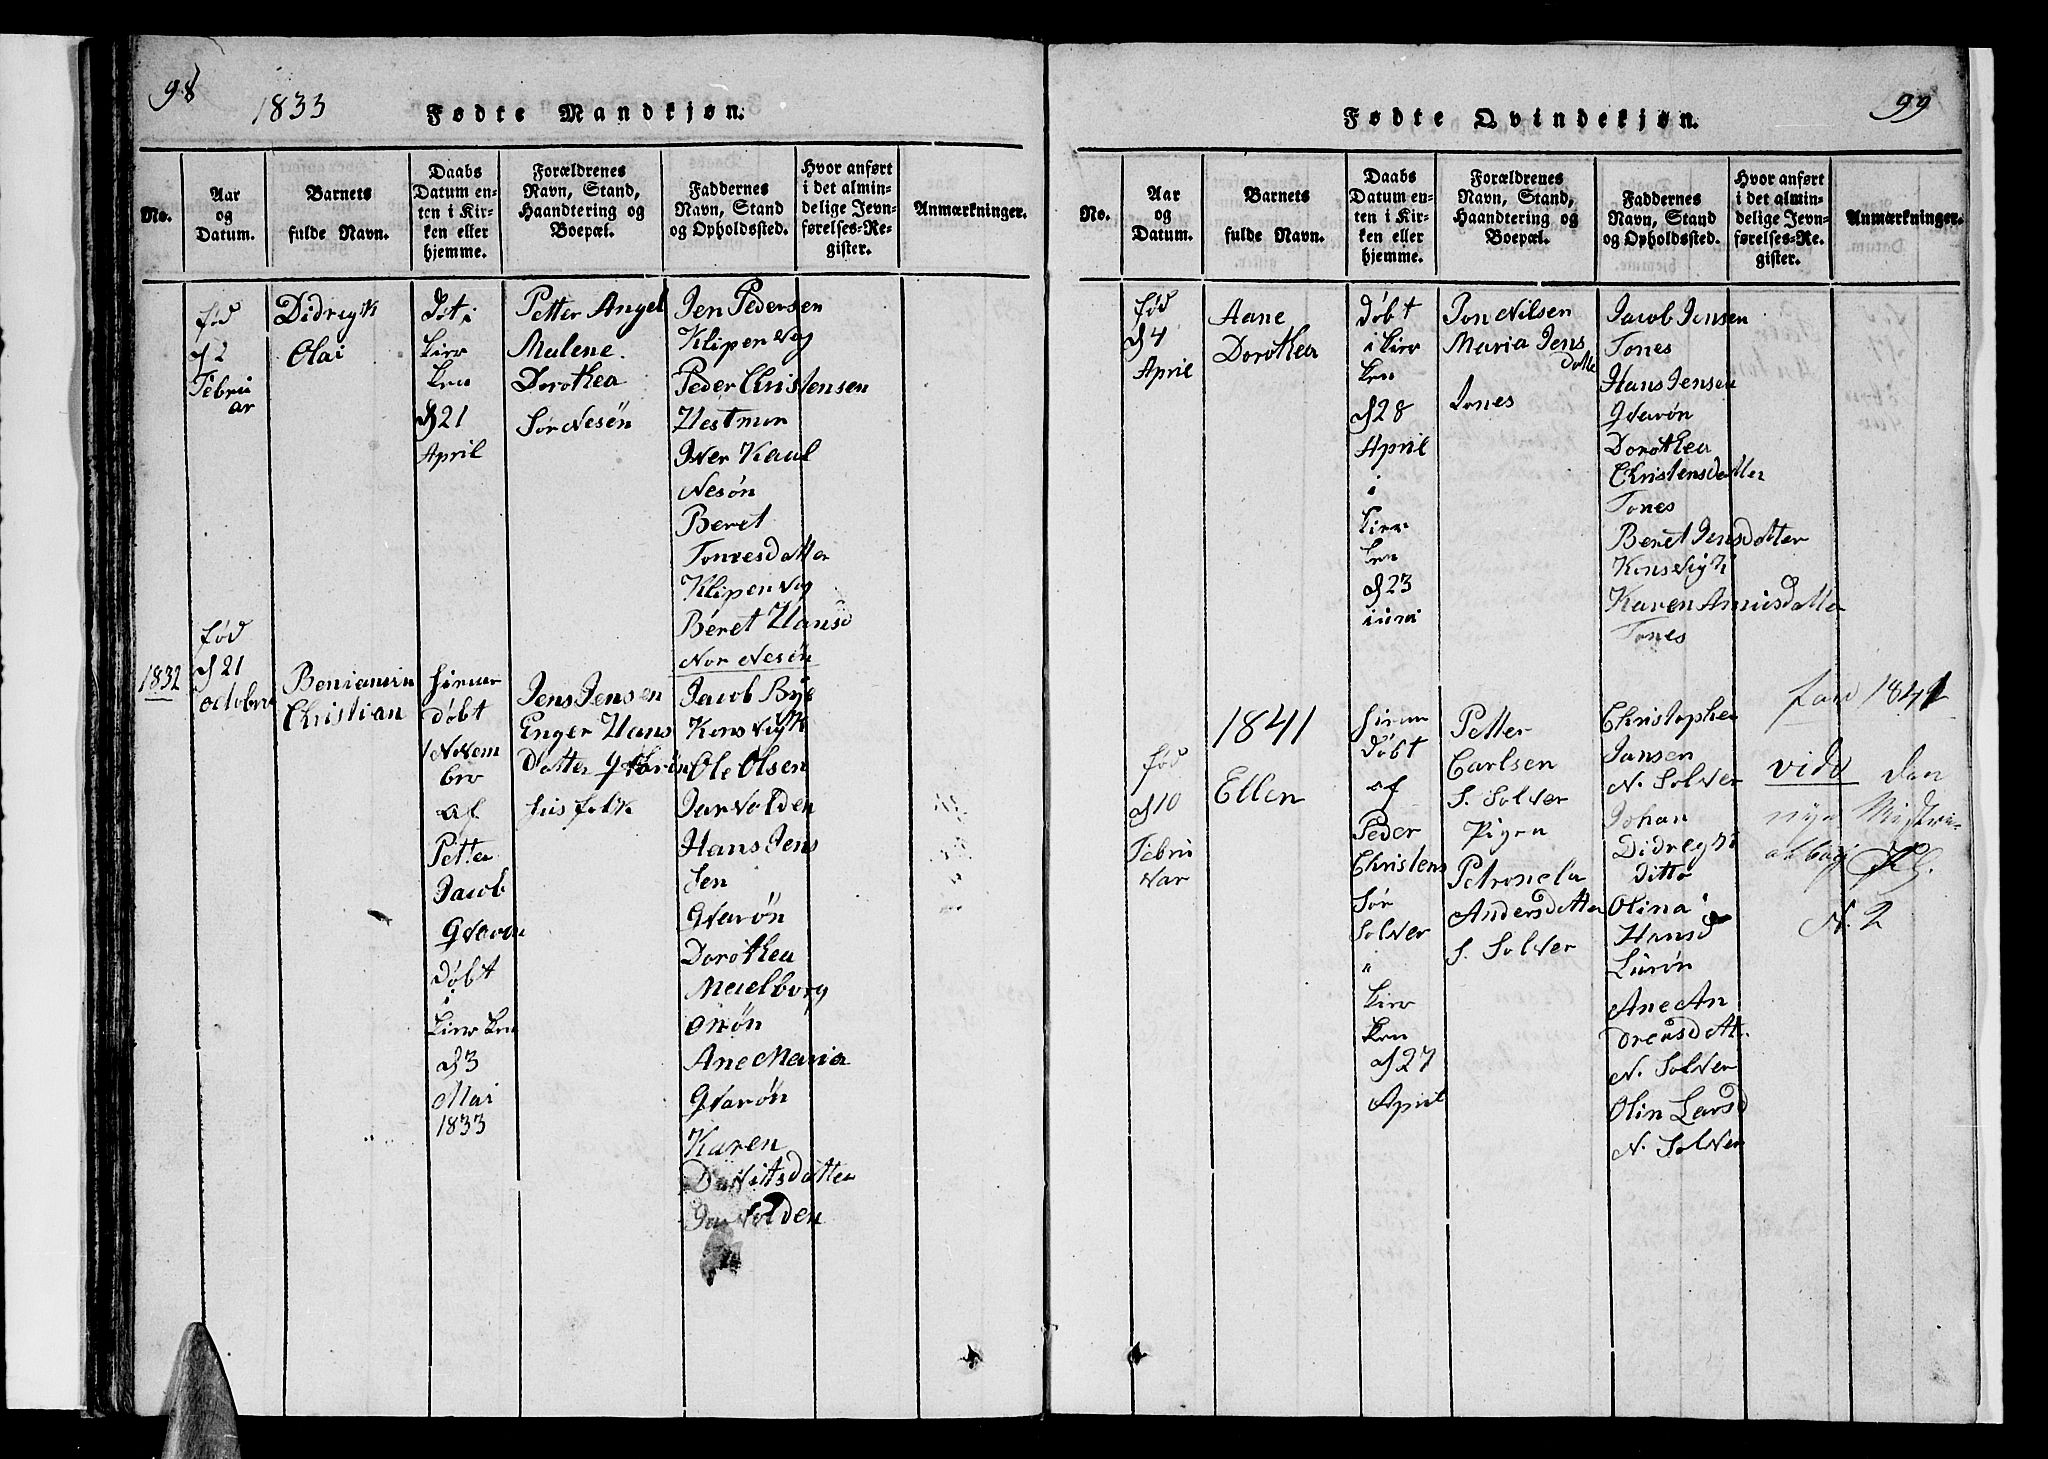 98
1833
Fødte Mandkjøn.
No.
Aar
og
Datum.
Barnets
fulde Navn.
Daabs
Datum en-
ten i Kir-
ken eller
hjemme.
Forældrenes
Navn, Stand,
Haandtering og
Boepæl.
Faddernes
Navn, Stand
og Opholdssted.
Hvor anført
i det almin-
delige Jevn-
førelses-Re-
gister.
Anmærkninger.
fød
d 2
Febru
ar
Didregk
Olai
døt i
kier
ken
d 21
April
Petter Angel
Malene
Dorothea
Sør Nesön
Jen Pedersen
Klipen Vog
Peder Christensen
Hestmon
Iver Kaul
Nesön
Beret
Tonresdatter
Klipen Vog
Beret Hansd
Nor Nesön
1832
fød
d 21
octobru
Beniamin
Christian
hiemme
døbt
Novem
bro
af
Petter
Jacob
Gvarøn
døbt
i
kier ken
d 3
Mai
1833
Jens Jensen
Enger Hans
Datter Gvarön
hus folk
Jacob Bye
Kons Vigk
Ole Olsen
Jarvolden
Hans Jens
sen
Gvarön
Dorothea
Meielborg
onøn
Ane Maria
Gvarön
Karen
Davitsdatter
Jarvolden
99
Fødte Qvindekjøn.
No.
Aar
og
Datum.
Barnets
fulde Navn.
Daabs
Datum en-
ten i Kir-
ken eller
hjemme.
Forældrenes
Navn, Stand,
Haandtering og
Boepæl.
Faddernes
Navn, Stand
og Opholdssted.
Hvor anført
i det almin-
delige Jevn-
førelses-Re-
gister.
Anmærkninger.
fød
d 4
April
Aane
Dorothea
døbt
i kier
ken
d 28
April
i
kier
ken
d 23
iuni
Jon Nilsen
Maria Jens
datte
Tones
Jacob Jensen
Tones
Hans Jensen
Gvarön
Dorothea
Christensdatter
Tones
Beret Jensdatter
Kons Vigk
Karen Annusdatter
Tones
fød
d 10
Febru
var
1841
Ellen
hiem
døbt
af
Peder
Christens
Sör
Solver
i
kier
ken
d 27
April
Petter
Carlsen
S. Solver
Pigen
Petronela
Andersdatter
S. Solver
Christopher
Jansen
N. Solver
Johan
Didregk
ditto
Olina
Hansd
Lurön
Ane An
dreasdat.
N. Solver
Olin Larsd
N. Solver
1841
vide den
nye Mistri
albog
N. 2